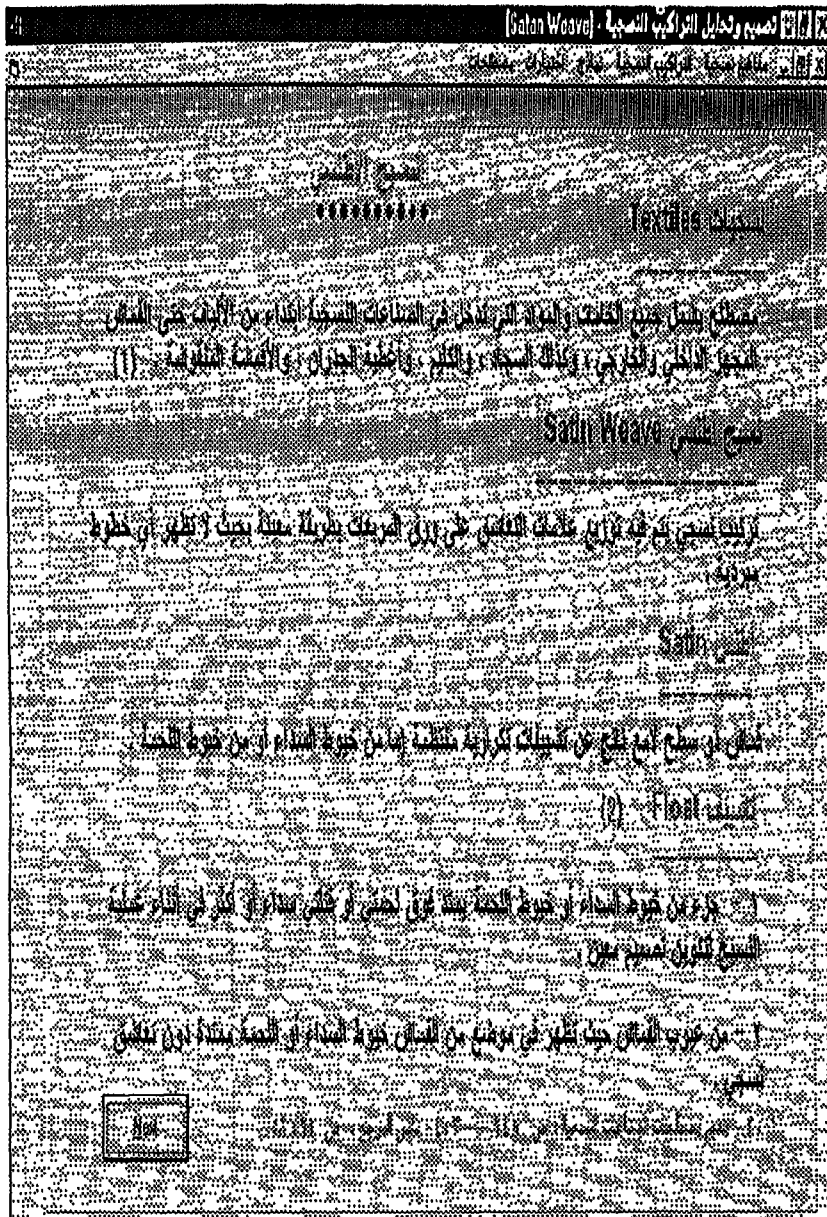 تصميم وتحليل التراكيب النسجية - [Satan Weave]
التراكيب النسجية نماذج اختبارات مصطلحات
النسيج الأطلسي
نسجيات Textiles
مصطلح يشمل جميع الخامات والمواد التي تدخل في الصناعات النسجية ابتداء من الألياف حتى القماش
المجهز الداخلي والخارجي ، وكذلك السجاد ، والكليم ، وأغطية الجدران ، والأقمشة (1)
نسيج أطلسي Satin Weave
تركيب نسجي يتم فيه توزيع علامات التعاشق على ورق المربعات بطريقة معينة بحيث لا تظهر أي خطوط
مبردية .
أطلس Satin
قماش ذو سطح لامع ناتج عن تشييفات تكرارية منتظمة إما من خيوط السداء أو من خيوط اللحمة .
تشييف Float (2)
١ - جزء من خيوط السداء أو خيوط اللحمة يمتد فوق لحمتي أو فتلتي سداء أو أكثر في أثناء عملية
النسيج لتكوين تصميم معين .
٢ - من عيوب القماش حيث تظهر في موضع من القماش خيوط السداء أو اللحمة ممتدة دون تعاشق
نسجي .
Next